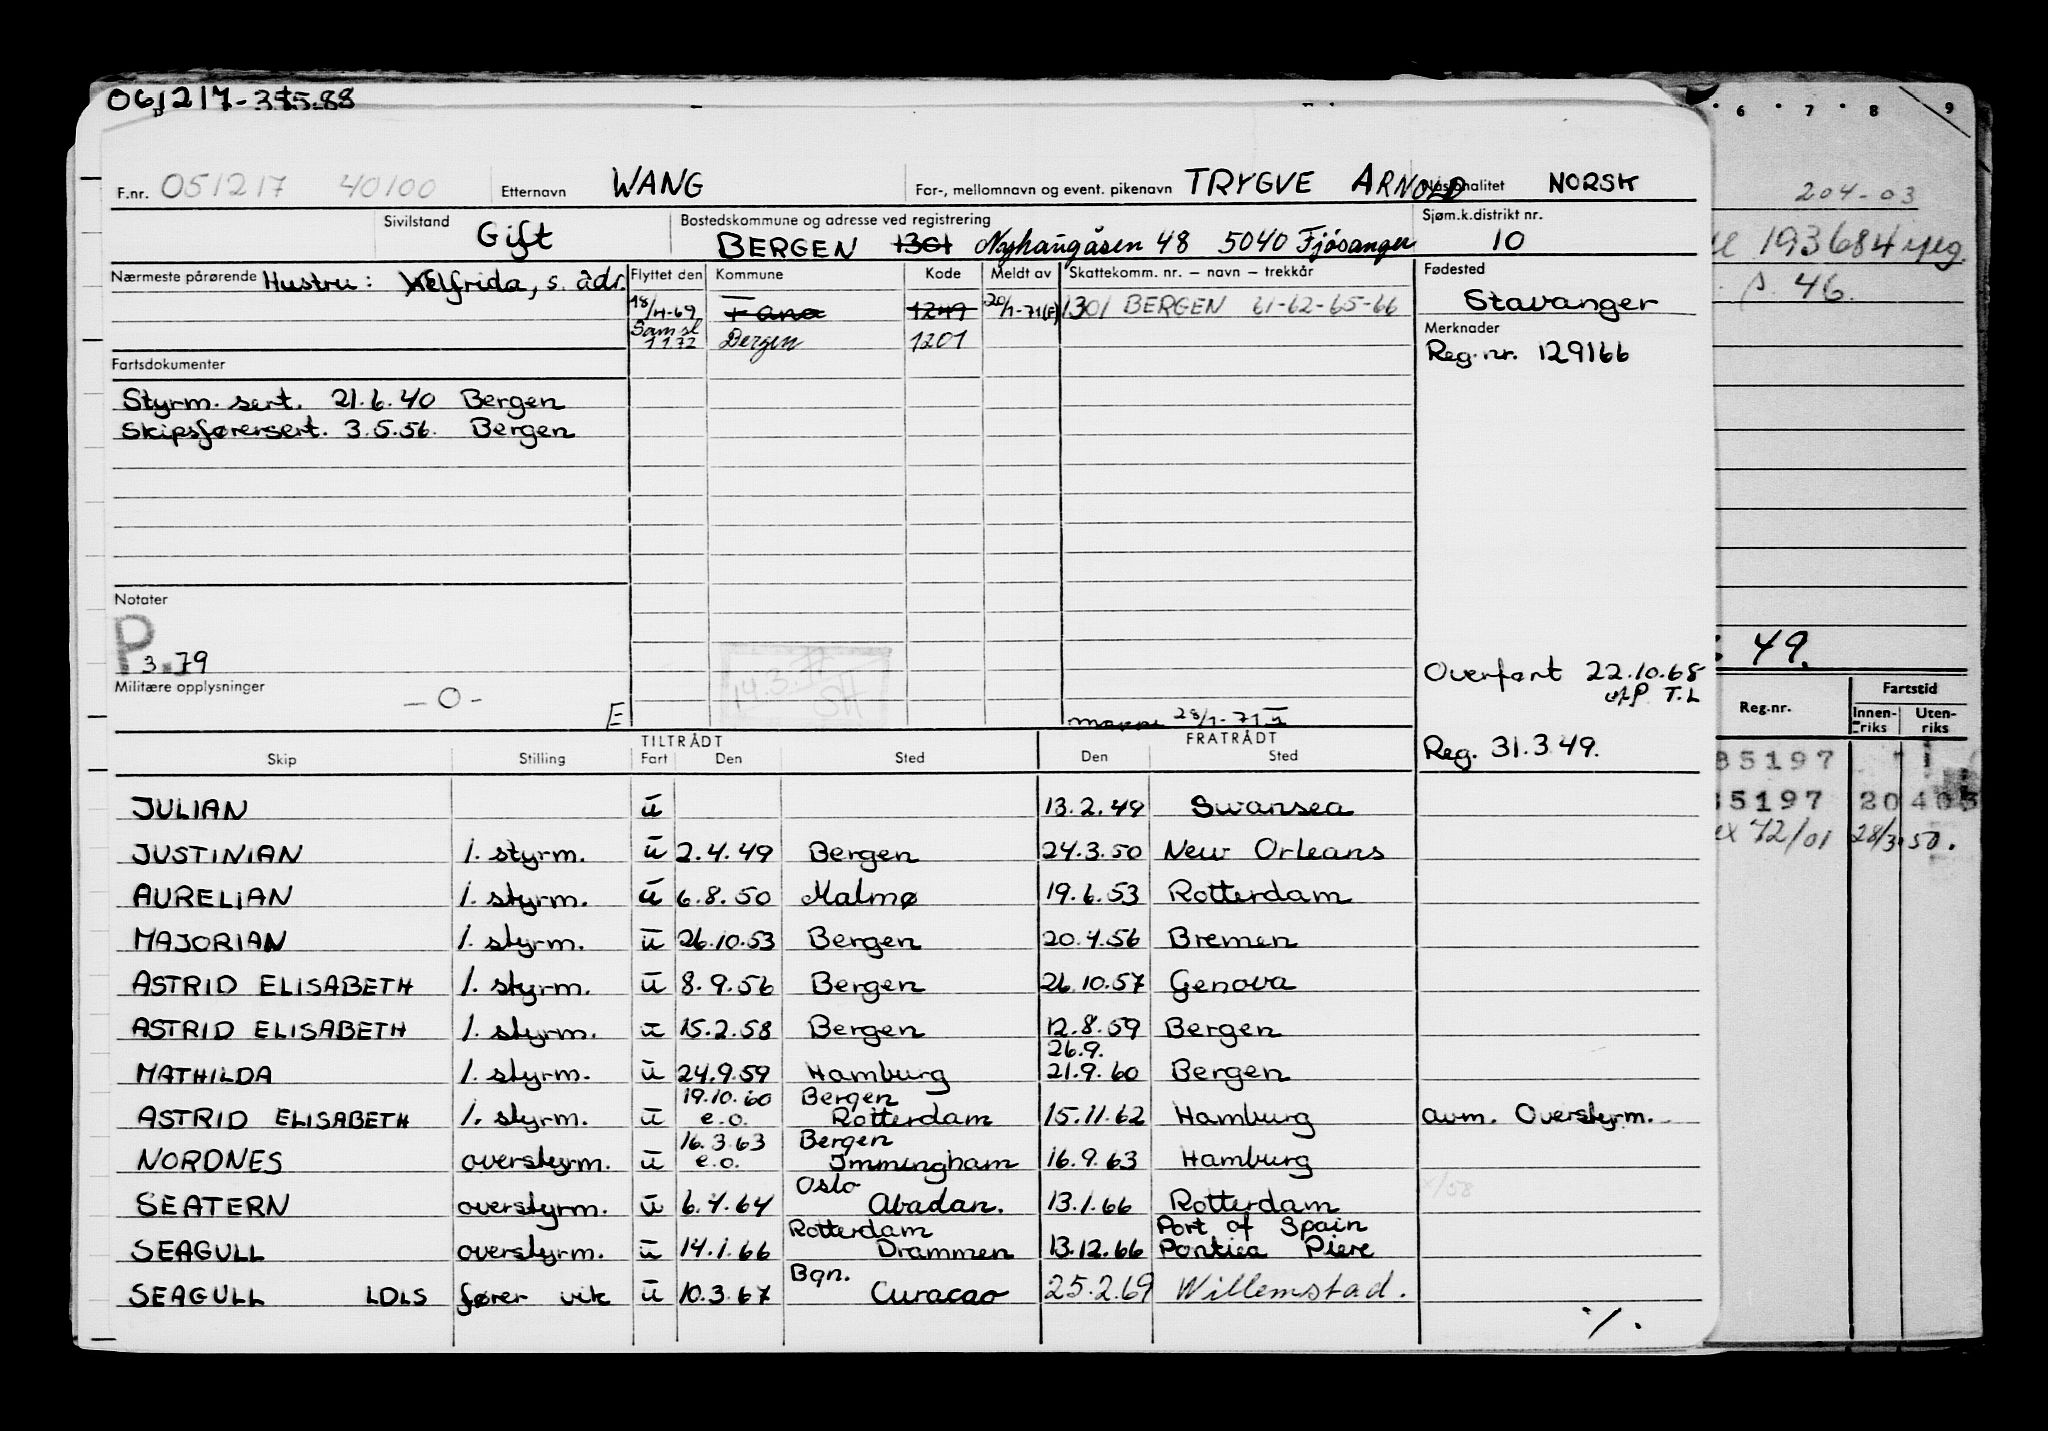 061217-37588
F.nr. 051217 40100 Etternavn WANG For-, mellomnavn og event. pikenavn TRYGVE ARNOLD Nasjonalitet NORSK
Sivilstand Gift Bostedskommune og adresse ved registrering BERGEN 1301 Nyhaugåsen 48 5040 Fjøsanger Sjøm.k.distrikt nr. 10
Nærmeste pårørende Hustru: Alfrida, s. adr. Flyttet den Kommune Kode Meldt av Skattekomm. nr. – navn – trekkår Fødested
18/4-69 Fana 1249 20/1-71(F) 1301 BERGEN 61-62-65-66 Stavanger
Samsl 1 1 72 Bergen 1201
Merknader
Reg.nr. 129166
Fartsdokumenter
Styrm. sert. 21.6.40 Bergen
Skipsførersert. 3.5.56. Bergen
Notater
P.
3.79
14.3.77
SH
Militære opplysninger -0- E
28/1-71
Overført 22.10.68
T.L
Reg. 31.3.49.
TILTRÅDT FRATRÅDT
Skip Stilling Fart Den Sted Den Sted
JULIAN u 13.2.49 Swansea
JUSTINIAN 1. styrm. u 2.4.49 Bergen 24.3.50 New Orleans
AURELIAN 1. styrm. u 6.8.50 Malmø 19.6.53 Rotterdam
MAJORIAN 1. styrm. u 26.10.53 Bergen 20.4.56 Bremen
ASTRID ELISABETH 1. styrm. u 8.9.56 Bergen 26.10.57 Genova
ASTRID ELISABETH 1. styrm. u 15.2.58 Bergen 12.8.59 Bergen
26.9.
MATHILDA 1. styrm. u 24.9.59 Hamburg 21.9.60 Bergen
19.10.60 Bergen
ASTRID ELISABETH 1. styrm. u e.o. Rotterdam 15.11.62 Hamburg avm. Overstyrm.
16.3.63 Bergen
NORDNES overstyrm. u e.o. Immingham 16.9.63 Hamburg
Oslo
SEATERN overstyrm. u 6.4.64 Abadan. 13.1.66 Rotterdam
Rotterdam Port of Spain
SEAGULL overstyrm. u 14.1.66 Drammen 13.12.66 Pontiea Piere
Bgn.
SEAGULL LDLS fører vik u 10.3.67 Curacao 25.2.69 Willemstad.
./.
6 7 8 9
204-03
193684
46.
49.
Reg.nr. Fartstid
Innenriks Utenriks
85197
35197 20403
72/01 28/3.50.